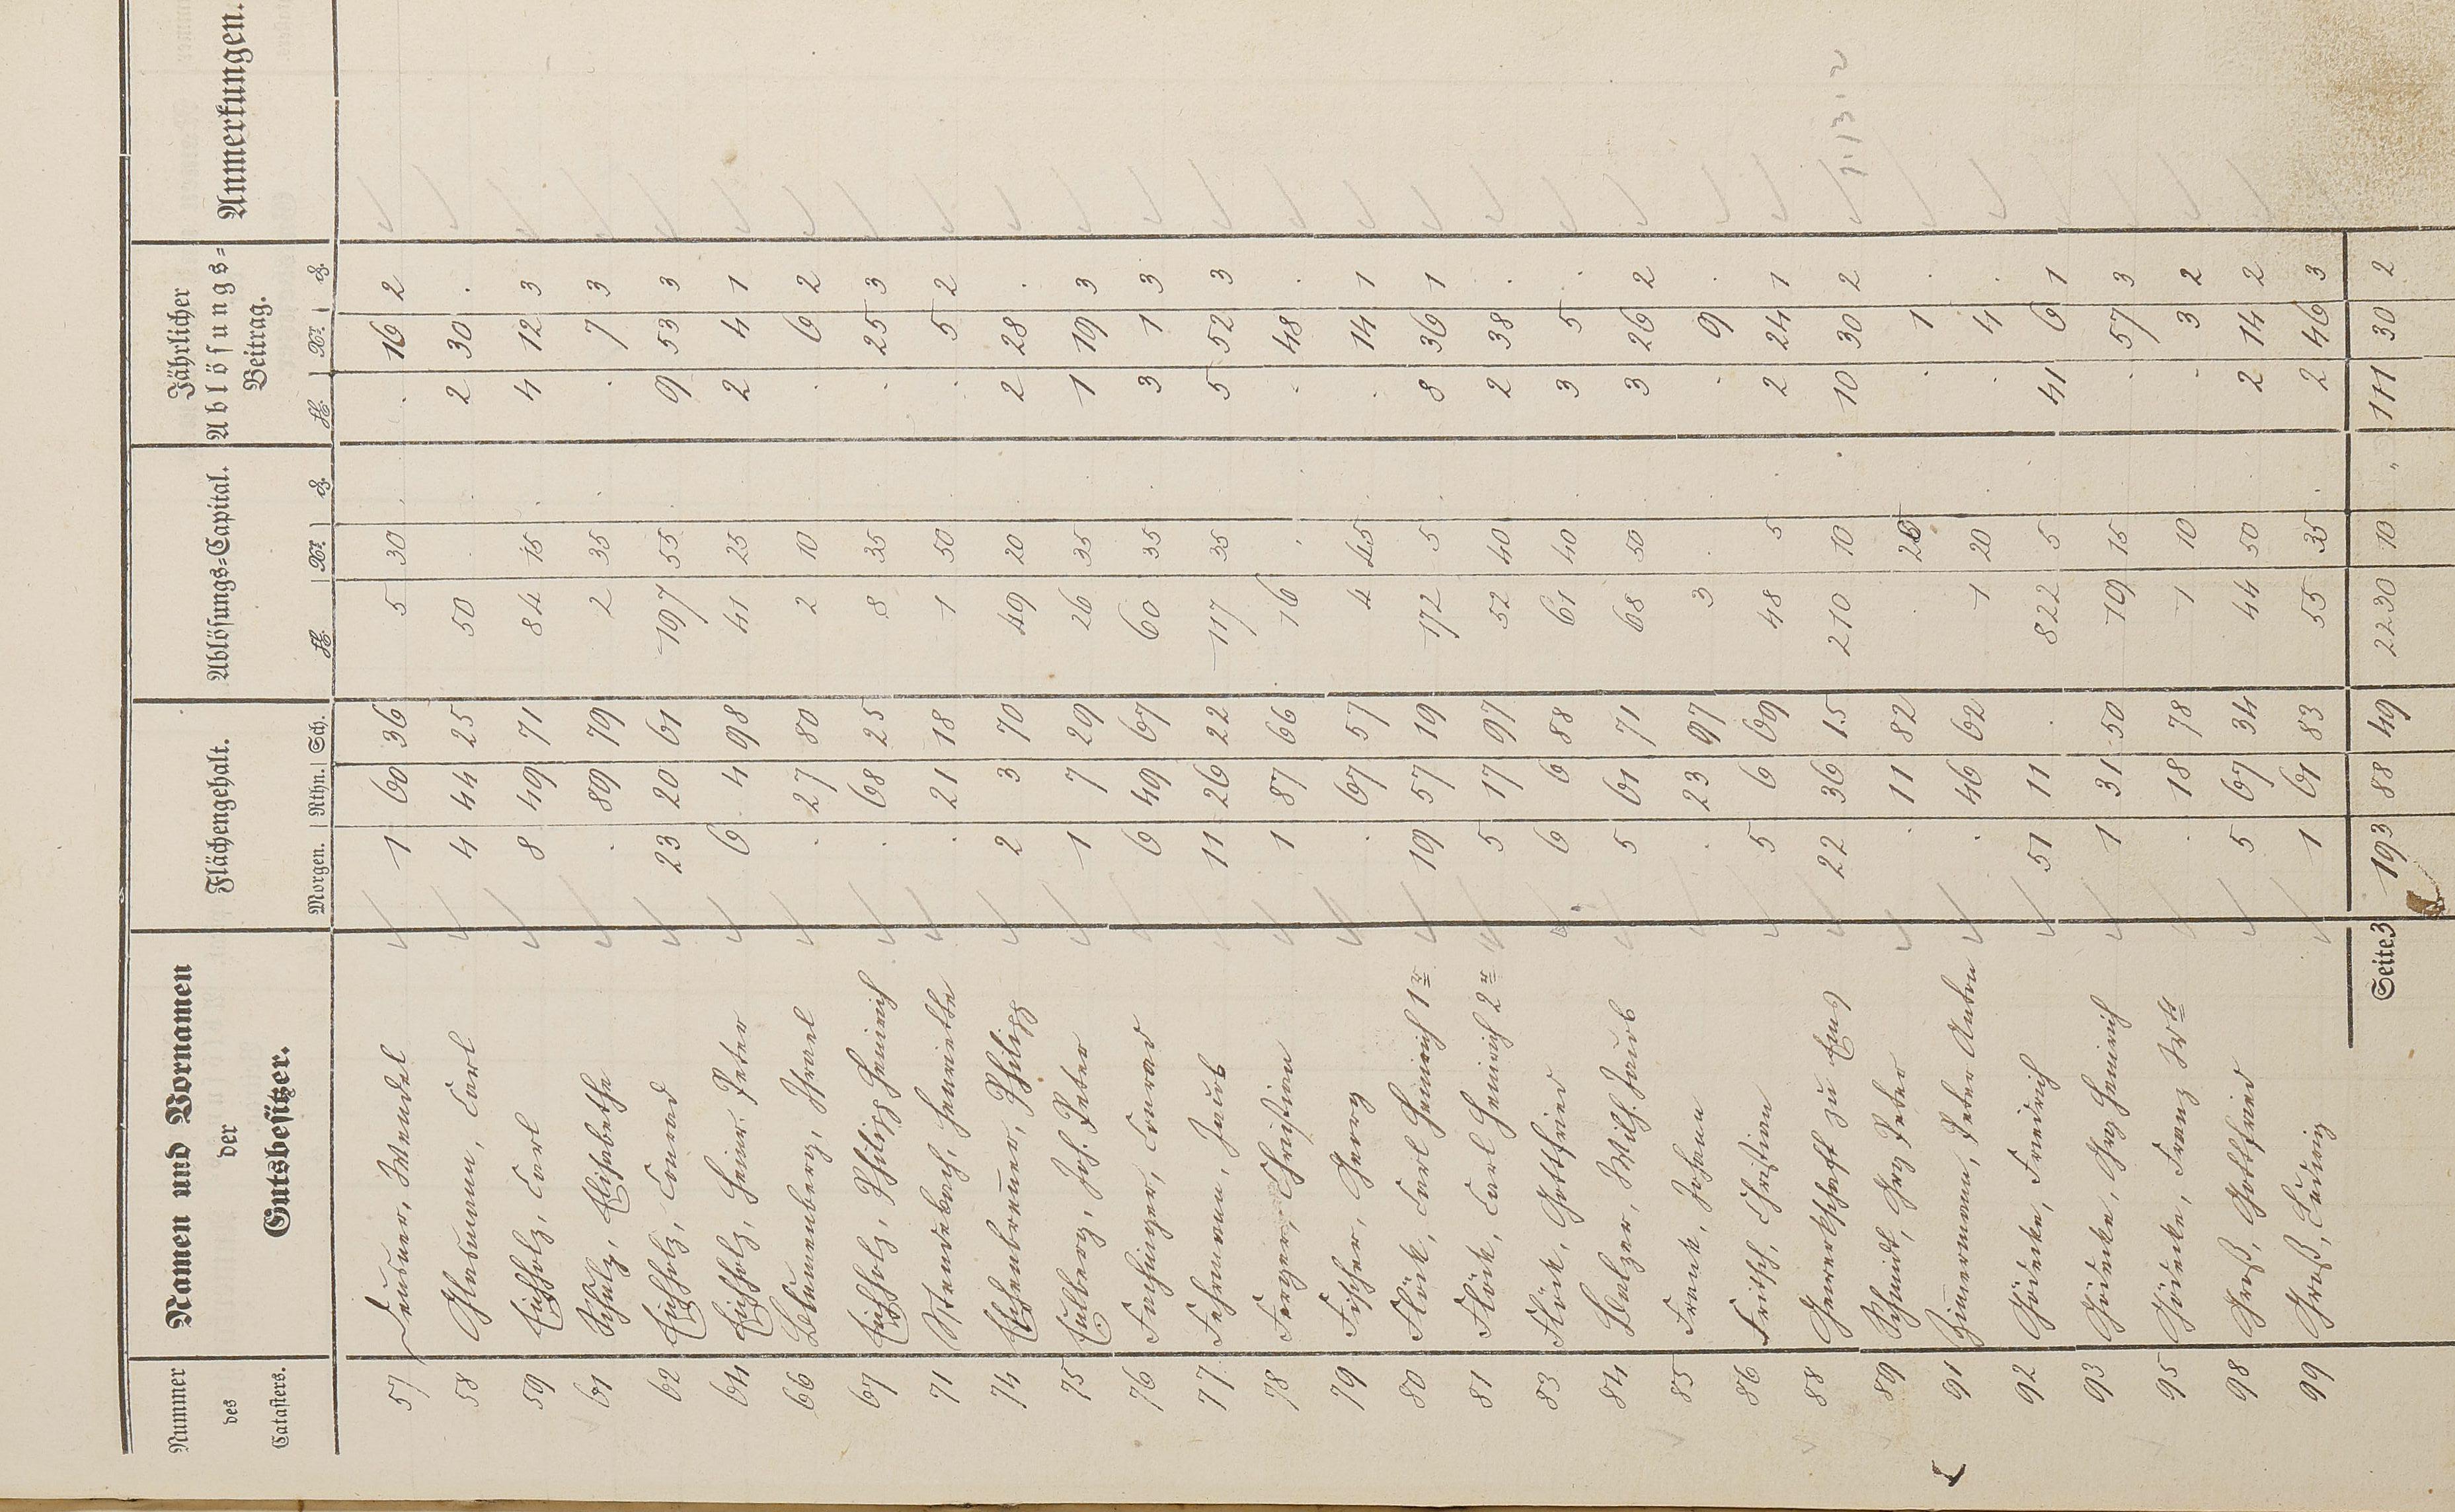 Nummer des Catasters. | Namen und Vornamen der Gutsbesitzer. | Flächengehalt. | Ablösungs-Capital. | Jährlicher Ablösungs-Beitrag. | Anmerkungen.
Morgen. | Rthn. | Sch. | fl. | Xr. | d. | fl. | Xr. | d.
57 Wendel 1 60 36 5 30 . . 16 2
58 Carl 4 44 25 50 2 30 .
59 Eichholz, Carl 8 49 71 84 15 . 4 12 3
61 Schulz, Elisabethe . 89 79 2 35 . . 7 3
62 Eichholz, Conrad 23 20 61 197 55 . 9 53 3
64 Eichholz, Heinr. Peter 6 4 98 41 25 2 4 1
66 Blumenberg, Israel . 27 80 2 10 . . 6 2
67 Eichholz, Philipp Heinrich . 68 25 8 35 . . 25 3
71 Henriette . 21 18 1 50 . . 5 2
74 Eschenbrenner, Philipp 2 3 70 49 20 . 2 28 .
75 Eulberg, Joh. Peter 1 7 29 26 35 . 1 19 3
76 Fachinger, Conrad 6 49 67 60 35 . 3 1 3
77 Fehrmann, Jacob 11 26 22 117 35 . 5 52 3
78 Ferger, Christian 1 87 66 16 . . . 48 .
79 Fischer, Georg . 67 57 4 45 . . 14 1
80 Flöck, Carl Heinrich 1r 19 57 19 172 5 . 8 36 1
81 Flöck, Carl Heinrich 2r 5 17 97 52 40 . 2 38 .
83 Flöck, Gottfried 6 6 88 61 40 . 3 5 .
84 Balzer, Wilh. Jacob 5 61 71 68 50 . 3 26 2
85 Frank, Johann . 23 97 3 . . . 9 .
86 Fritsch, Christian 5 6 69 48 5 . 2 24 1
88 Gewerkschaft zu Ems 22 36 15 210 10 . 10 30 2
89 Schmidt, Grg Peter . 11 82 . 25 . . 1 .
91 Zimmermann, Peter Anton . 46 62 1 20 . . 4 .
92 Gödecke, Friedrich 51 11 . 822 5 . 41 6 1
93 Gödecke, Grg Heinrich 1 31 50 19 15 . . 57 3
95 Gödecke, Franz . 18 78 1 10 . . 3 2
98 Groß, Gottfried 5 67 34 44 50 . 2 14 2
99 Groß, Ludwig 1 61 83 55 35 . 2 46 3
Seite 3 193 88 49 2230 10 " 111 30 2